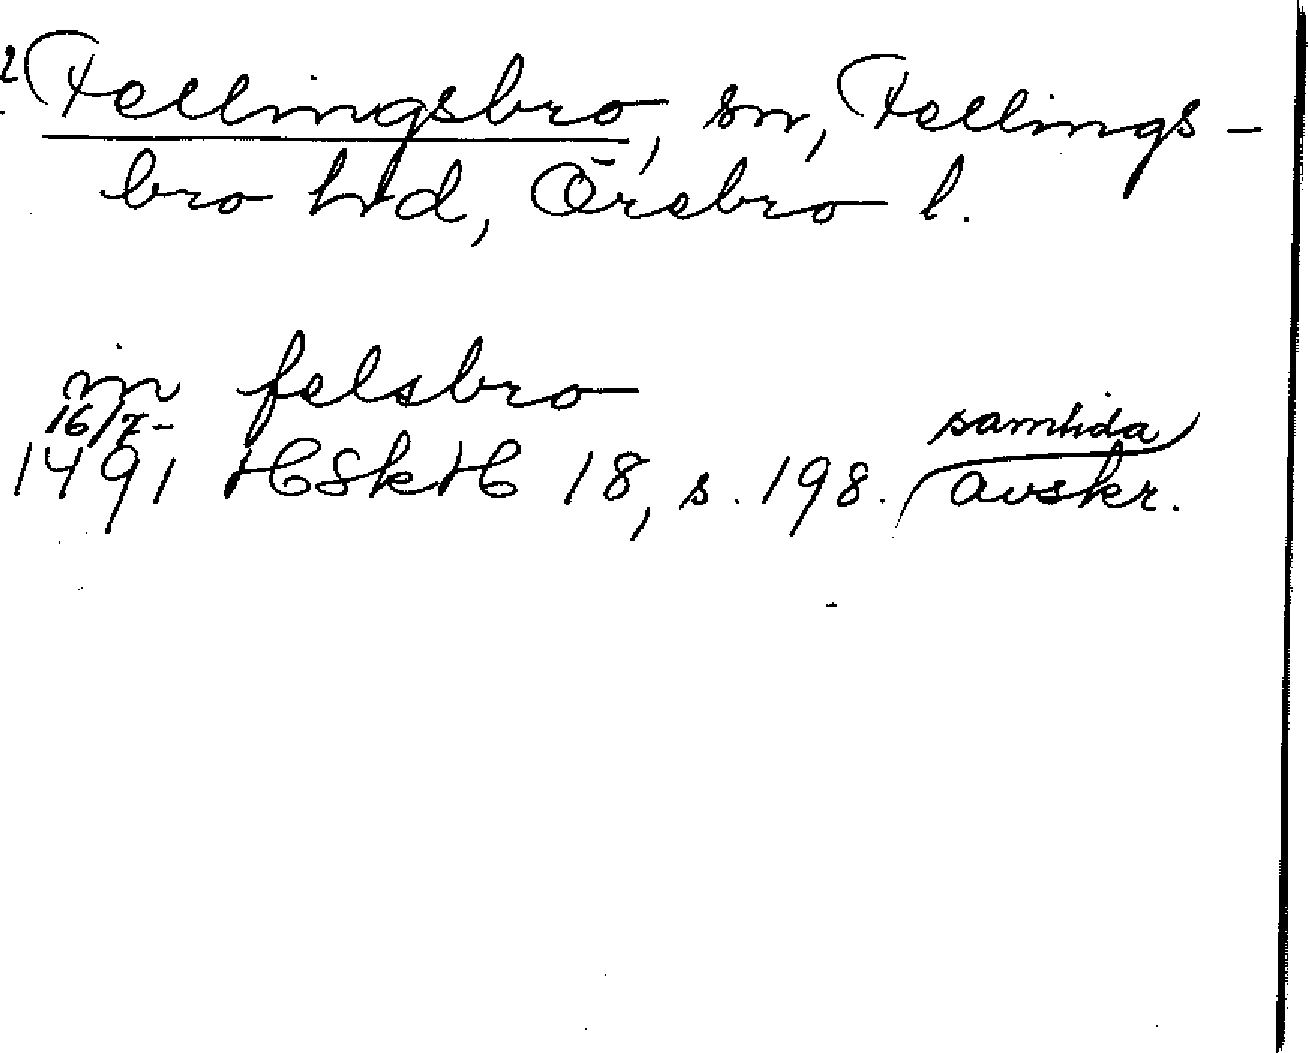 Fellingsbro, sn, Fellings-
bro hd, Örebro l.
in felsbro
16/7-
1491 HSkH 18, s. 198. samtida
avskr.